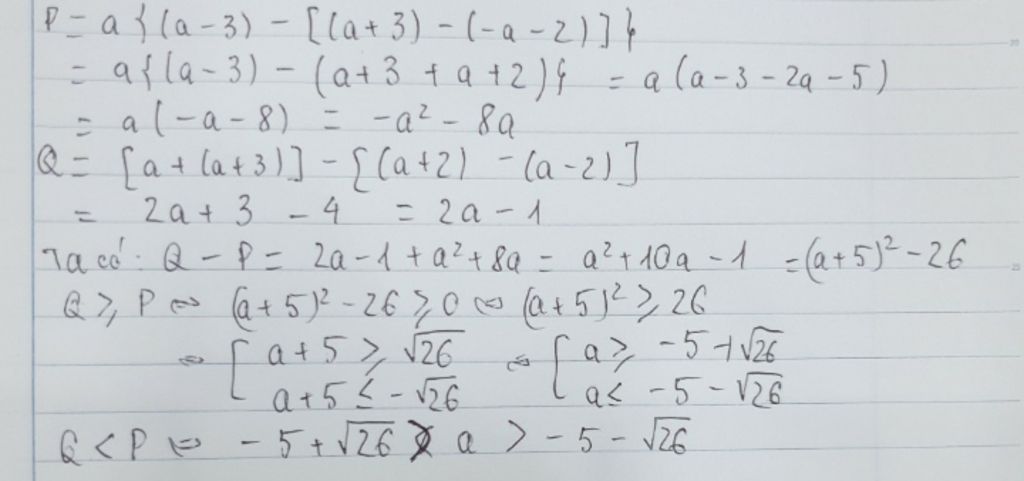 P = a{(a-3) - [(a+3) - (-a-2)]}
= a{(a-3) - (a+3 + a+2)} = a(a-3-2a-5)
= a(-a-8) = -a² - 8a
Q = [a + (a+3)] - [(a+2) - (a-2)]
= 2a + 3 - 4 = 2a - 1
Ta có: Q - P = 2a - 1 + a² + 8a = a² + 10a - 1 = (a+5)² - 26
Q ≥ P ⇔ (a+5)² - 26 ≥ 0 ⇔ (a+5)² ≥ 26
⇔ [ a + 5 ≥ √26 ⇔ [ a ≥ -5 + √26
a + 5 ≤ -√26 a ≤ -5 - √26
Q < P ⇔ -5 + √26 > a > -5 - √26